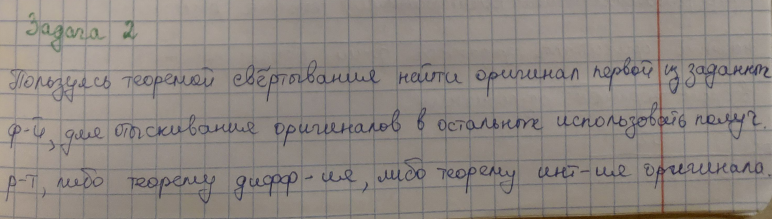 Задача 2
Пользуясь теоремой свёртывания найти оригинал первой из заданных
ф-й, для отыскивания оригиналов в остальных использовать получ.
р-т, либо теорему дифф-ия, либо теорему инт-ия оригинала.